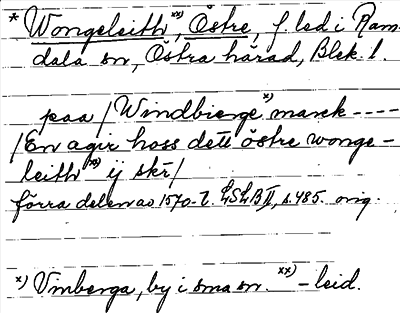 * Wongeleith xx), Östre, f. led i Ram-
dala sn, Östra härad, Blek. l.
paa /Windbierge x) marck ----
/En agir hoss dett östre wonge-
leith xx) ij skr/
förra delen av 1570-t. LSLB II, s. 485. orig.
x) Vinberga, by i sma sn. xx) -leid.